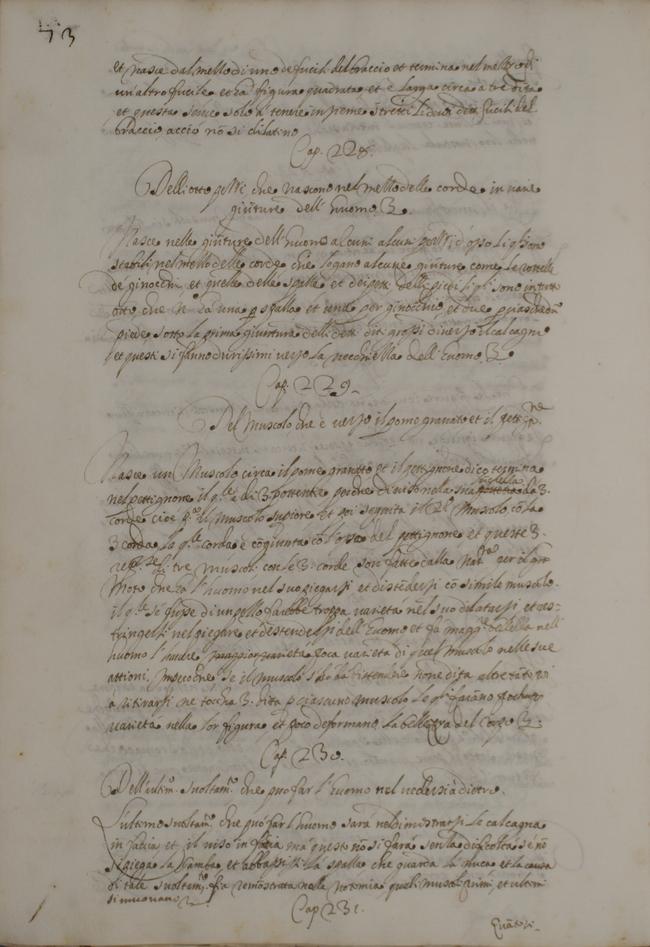 73
et nasce dal mezzo di uno de fucili del braccio et termina nel mezzo di
un altro fucile et ha figura quadrata et è larga circa a tre dita
et questa serve solo a tenere insieme stretti li due detti fucili del
braccio accio nō si dilatino
Cap. 228.
Delli otto pezzi che nascono nel mezzo delle corde in varie
giunture dell'huomo
Nasce nelle giunture dell'huomo alcuni pezzi d'osso li quali sono
stabili nel mezzo delle corde che legano alcune giunture come le rotelle
de ginocchi, et quelle delle spalle et de petti delli piedi li quali sono in tutto
otto che n'ha una p spalla et una per ginocchio et due p ciaschedun
piede sotto la prima giuntura delli deti grossi di verso il calcagno
et questi si fanno durissimi verso la vecchiezza dell'huomo
Cap. 229.
Del Muscolo che è verso il pomo granato et il pettignone
Nasce un Muscolo circa il pomo granato et il pettignone dico termina
nel pettignone il q.le è di 3 potentie perche diviso nella sua
corde cioè il muscolo superiore et poi seguita il 2.º Muscolo cō la
3 corda la q.le corda è cogiunta cō l'osso del pettignone et queste 3.
tre muscoli con le 3. corde son fatte dalla Nat. per il gran
Moto che ha l'huomo nel suo piegarsi et distēdersi cō simile muscolo
il q.le se fusse di un pezzo farebbe troppa varietà nel suo dilatarsi et res-
tringersi nel piegare et destendersi dell'huomo et fa magg.r bellezza nell'
huomo l'havere poca varietà di q.uel muscolo nelle sue
attioni, imperoche se il muscolo s'ha da distendere nove dita altretāti poi
a ritirarsi ne tocca 3. dita p ciascuno muscolo le q.li faranno poca
varietà nella lor figura et poco deformano la bellezza del corpo
Cap. 230.
Dell'ultim.º svoltam.º che può far l'huomo nel vedersi à dietro
L'ultimo svoltam.º che può far l'huomo sarà nel dimostrarsi le calcagna
in faccia et il viso in faccia ma questo nō si fara senza dificoltà se nō
si piega la gamba et abbassisi la spalla che guarda la nuca et la causa
di tale svoltam.to fia dimostrata nella notomia quali muscoli primi et ultimi
si muovano
Cap 231.